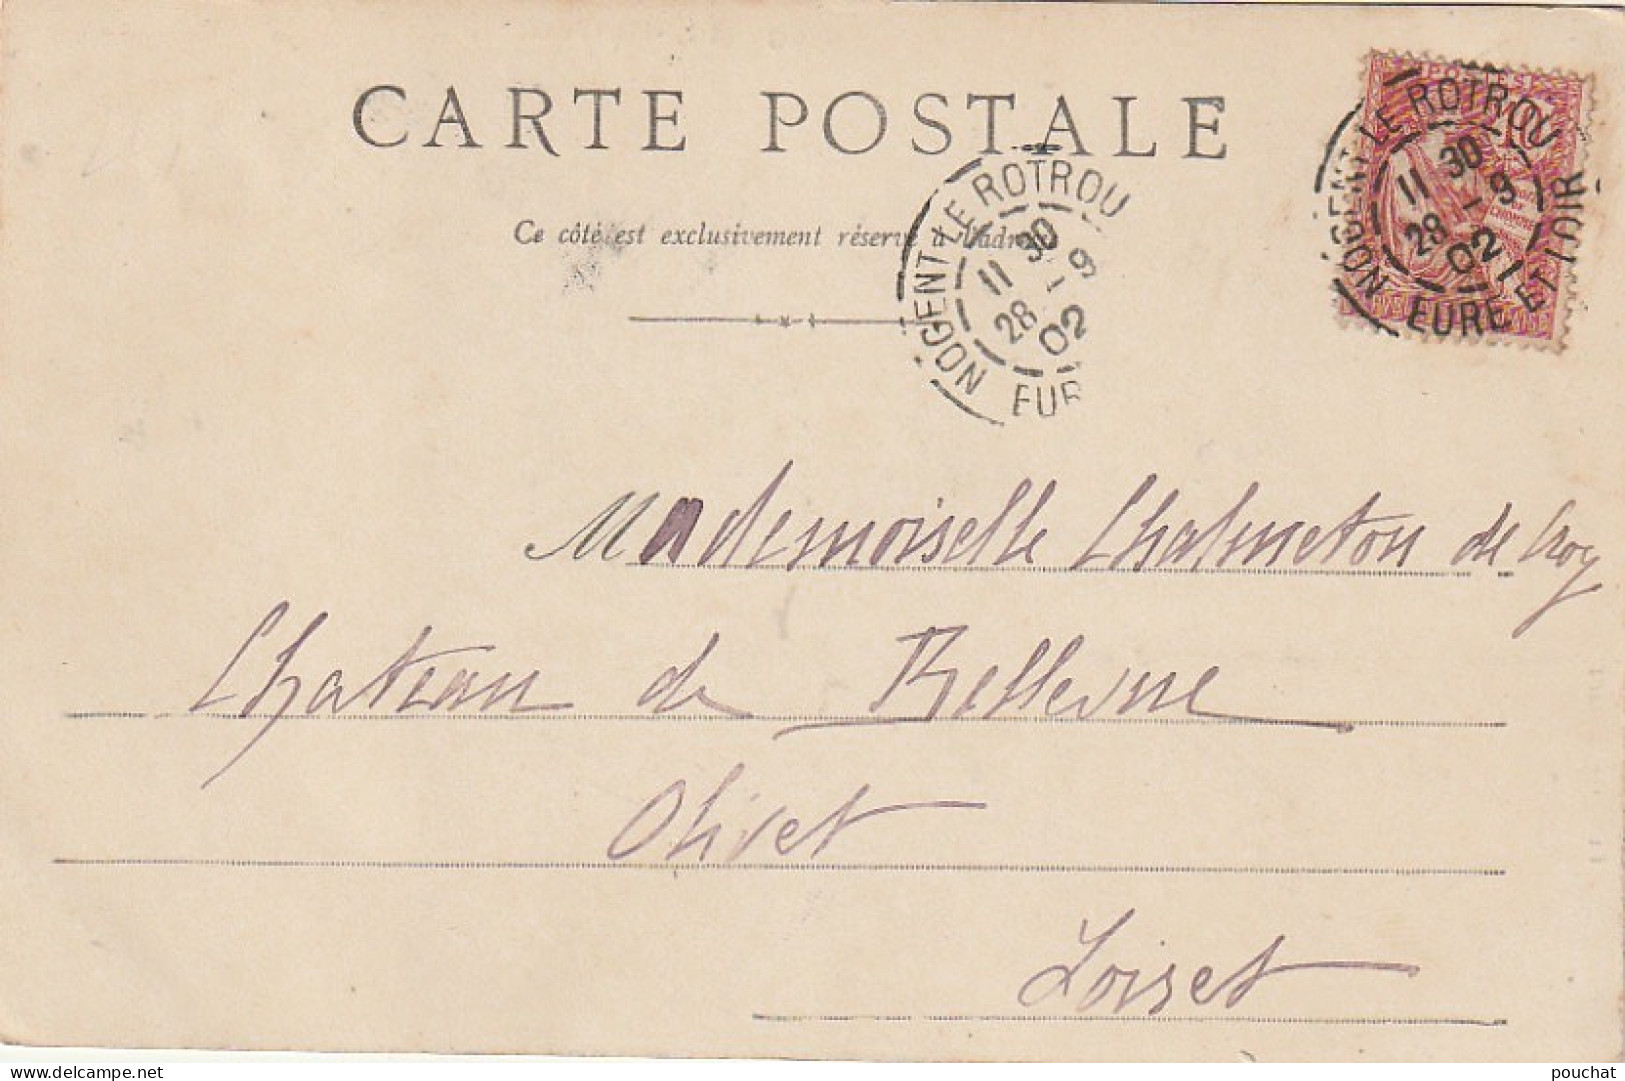 CARTE POSTALE
Ce côté est exclusivement réservé à l'adresse
NOGENT LE ROTROU
11 30
28 - 9
02
EUR
POSTES
NOGENT LE ROTROU
11 30
28 - 9
02
EURE ET LOIR
Mademoiselle Chalmeton de Croy
Chateau de Bellevue
Olivet
Loiret
delcampe.net
pouchat